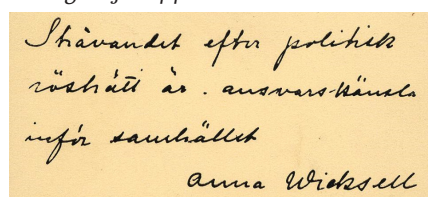 Strävandet efter politisk
rösträtt är . ansvarskänsla
inför samhället
Anna Wicksell